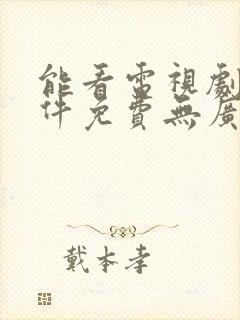 能看電視劇
件免費無廣
戴本孝